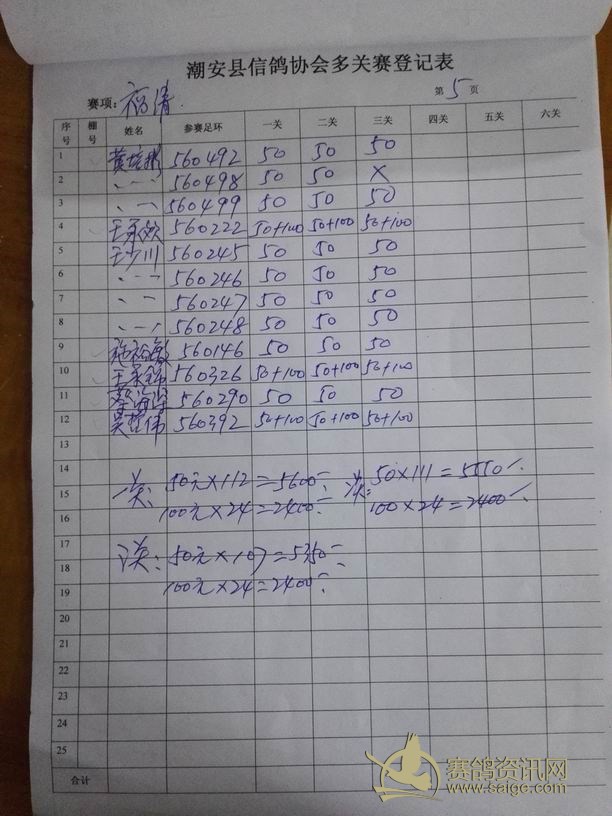 潮安县信鸽协会多关赛登记表
赛项: 福清 第5页
序号 棚号 姓名 参赛足环 一关 二关 三关 四关 五关 六关
1 560492 50 50 50
2 、一一 560498 50 50 ×
3 、一 560499 50 50 50
4 560222 50+100 50+100 50+100
5 王少川 560245 50 50 50
6 、一一 560246 50 50 50
7 、一一 560247 50 50 50
8 、一一 560248 50 50 50
9 560146 50 50 50
10 560326 50+100 50+100 50+100
11 560290 50 50 50
12 560392 50+100 50+100 50+100
13
14
15
16
17
18
19
20
21
22
23
24
25
50元×112=5600
100元×24=2400
50×111=5550
100×24=2400
50元×107=5350
100元×24=2400
合计
赛鸽资讯网
www.saige.com